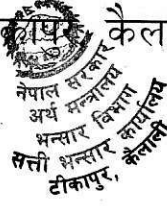 कैल
नेपाल सरकार
अर्थ मन्त्रालय
भन्सार विभाग
सत्ती भन्सार कार्यालय
टीकापुर, कैलाली